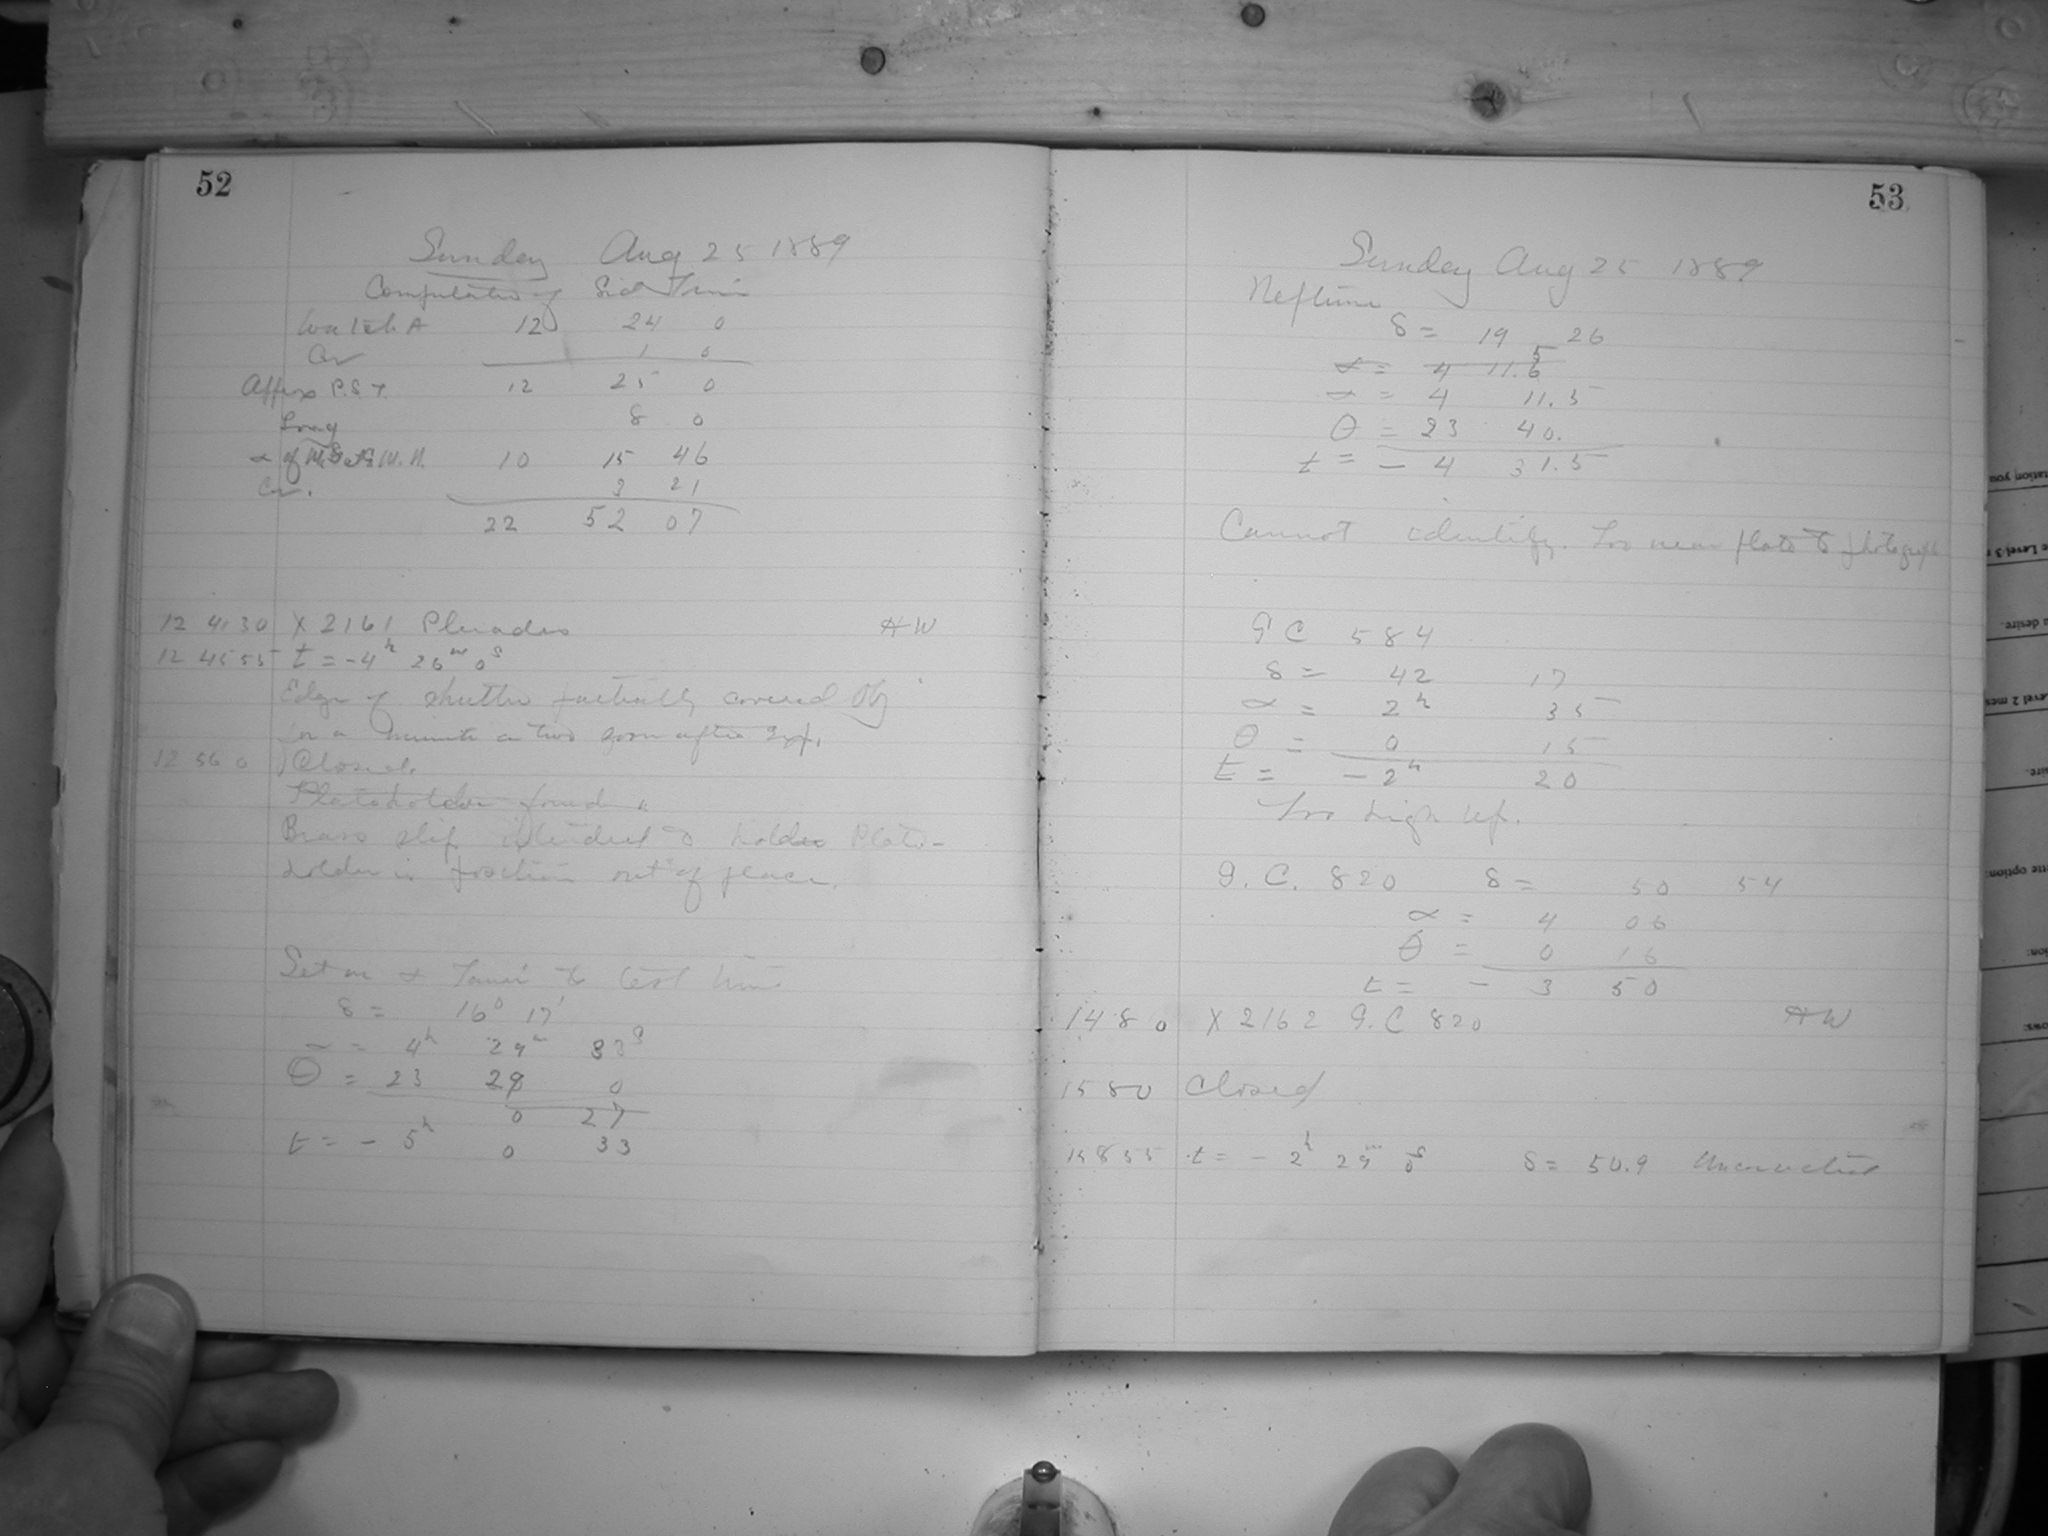 52
Sunday Aug 25 1889
Computation of Sid Time
Watch A 12 24 0
Cor 1 0
Approx P.S.T. 12 25 0
Long 8 0
α of M.S. at G.M.N. 10 15 46
Cor. 3 21
22 52 07
12 41 30 X 2161 Pleiades HW
12 45 55 t = -4h 26m 0s
Edge of shutter partially covered Obj
for a minute or two soon after Exp.
12 56 0 Closed.
Plateholder found
Brass slip intended to holder Plate-
holder in position out of place.
Set on α Tauri to test time
δ = 16° 17'
α = 4h 29m 33s
θ = 23 29 0
0 27
t = - 5h 0 33
53
Sunday Aug 25 1889
Neptune
δ = 19 26
α = 4 11.6
α = 4 11.5
θ = 23 40.
t = - 4 31.5
Cannot identify. Too near plate to photograph
G C 584
δ = 42 17
α = 2h 35
θ = 0 15
t = - 2h 20
Too high up.
G. C. 820 δ = 50 54
α = 4 06
θ = 0 16
t = - 3 50
14 8 0 X 2162 G. C 820 HW
15 8 0 Closed
15 8 55 t = - 2h 29m 0s δ = 50.9 Uncorrected